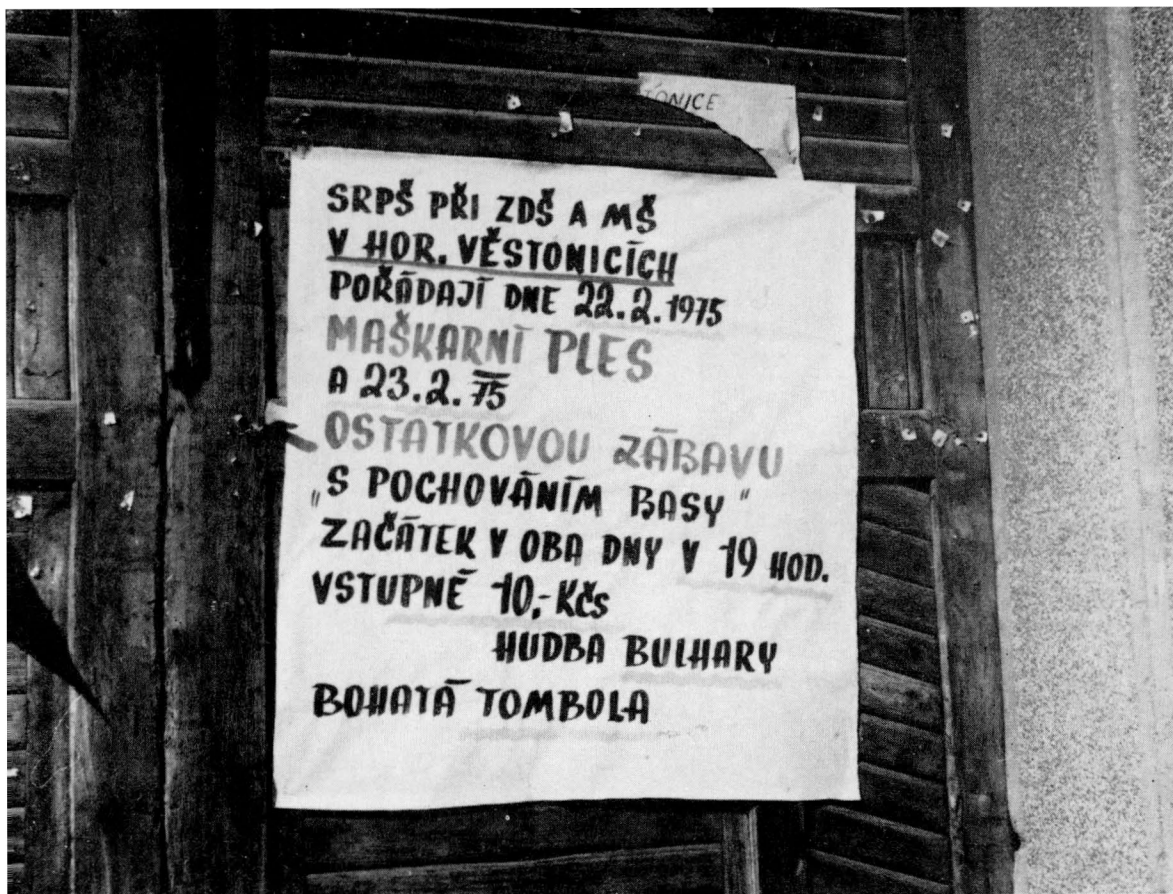 TONICE
SRPŠ PŘI ZDŠ A MŠ
V HOR. VĚSTONICÍCH
POŘÁDAJÍ DNE 22.2.1975
MAŠKARNÍ PLES
A 23.2.75
OSTATKOVOU ZÁBAVU
„S POCHOVÁNÍM BASY"
ZAČÁTEK V OBA DNY V 19 HOD.
VSTUPNÉ 10,- Kčs
HUDBA BULHARY
BOHATÁ TOMBOLA